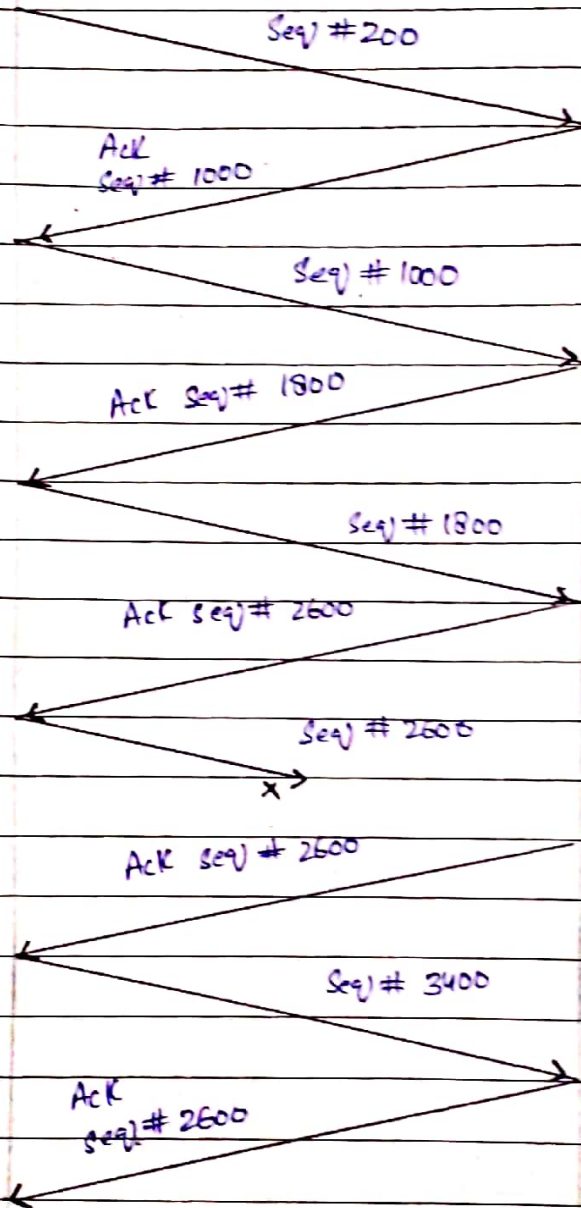 Seq #200
Ack
Seq # 1000
Seq # 1000
Ack Seq # 1800
Seq # 1800
Ack seq # 2600
Seq # 2600
x
Ack seq # 2600
Seq # 3400
Ack
seq # 2600